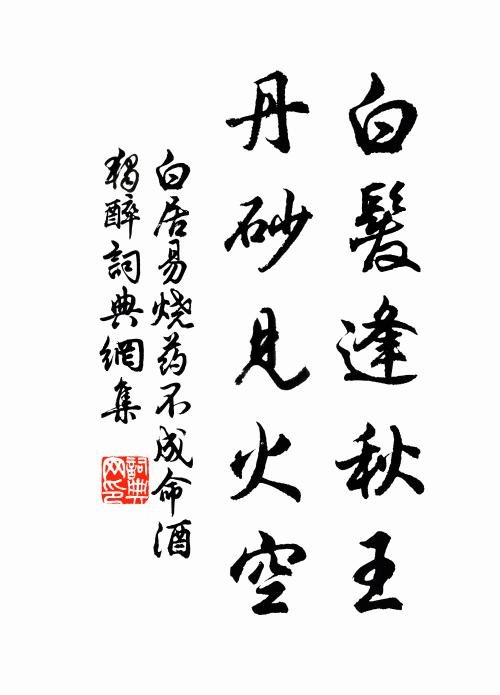 白髮逢秋王
丹砂見火空
白居易烧药不成命酒
獨醉詞典網集
詞典网印